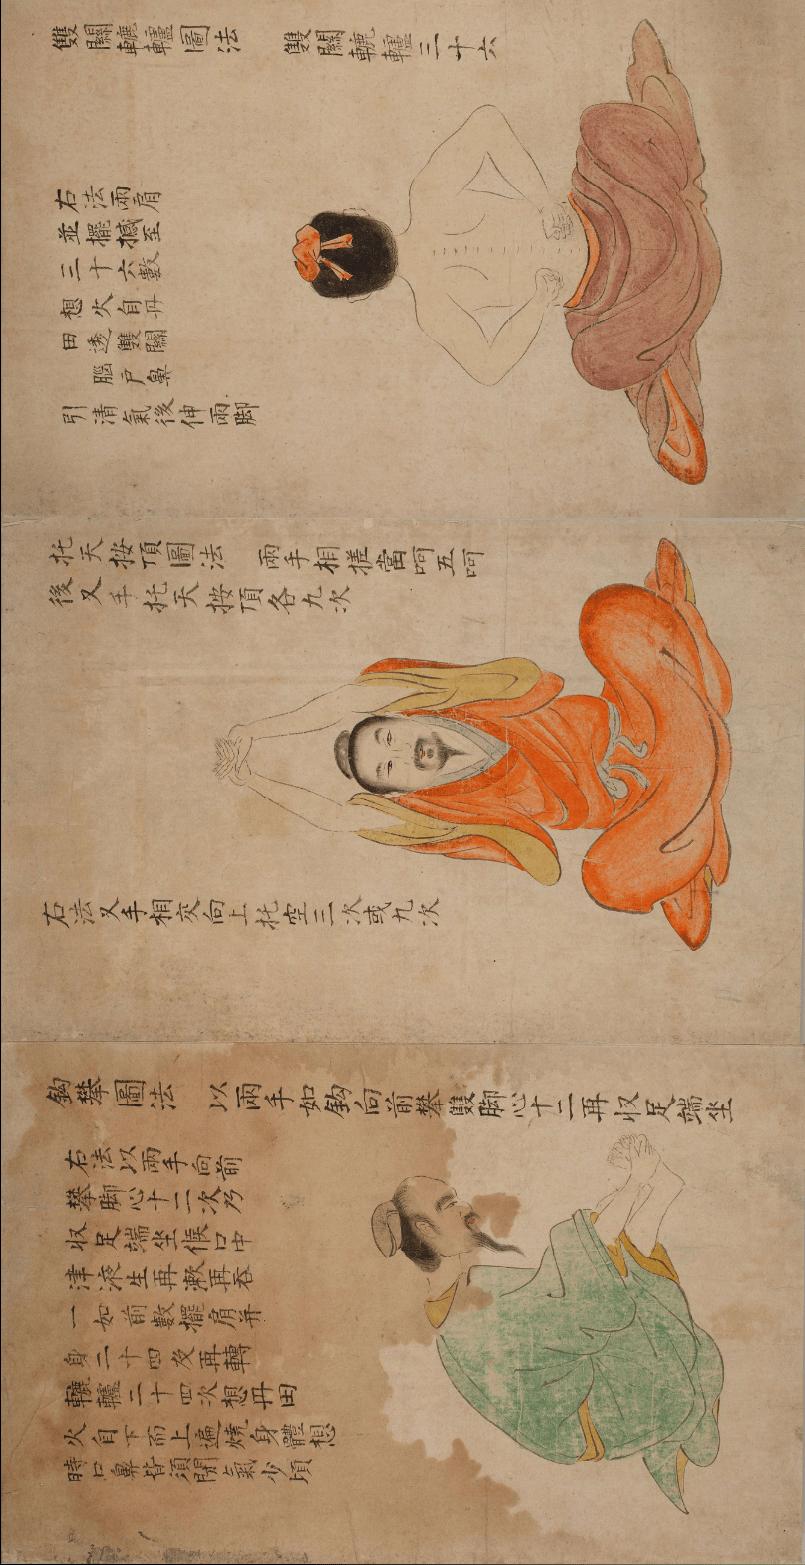 雙關轆轤圖法　雙關轆轤三十六
右法兩肩
並擺撼至
三十六數
想火自丹
田透雙關
腦戶鼻
引清氣後伸兩脚
托天按頂圖法　兩手相搓當呵五呵
後叉手托天按頂各九次
右法叉手相交向上托空三次或九次
鈎攀圖法　以兩手如鈎向前攀雙脚心十二再収足端坐
右法以兩手向前
攀脚心十二次乃
収足端坐候口中
津液生再漱再吞
一如前數擺肩并
身二十四及再轉
轆轤二十四次想丹田
火自下而上遍燒身體想
時口鼻皆須閉氣少頃